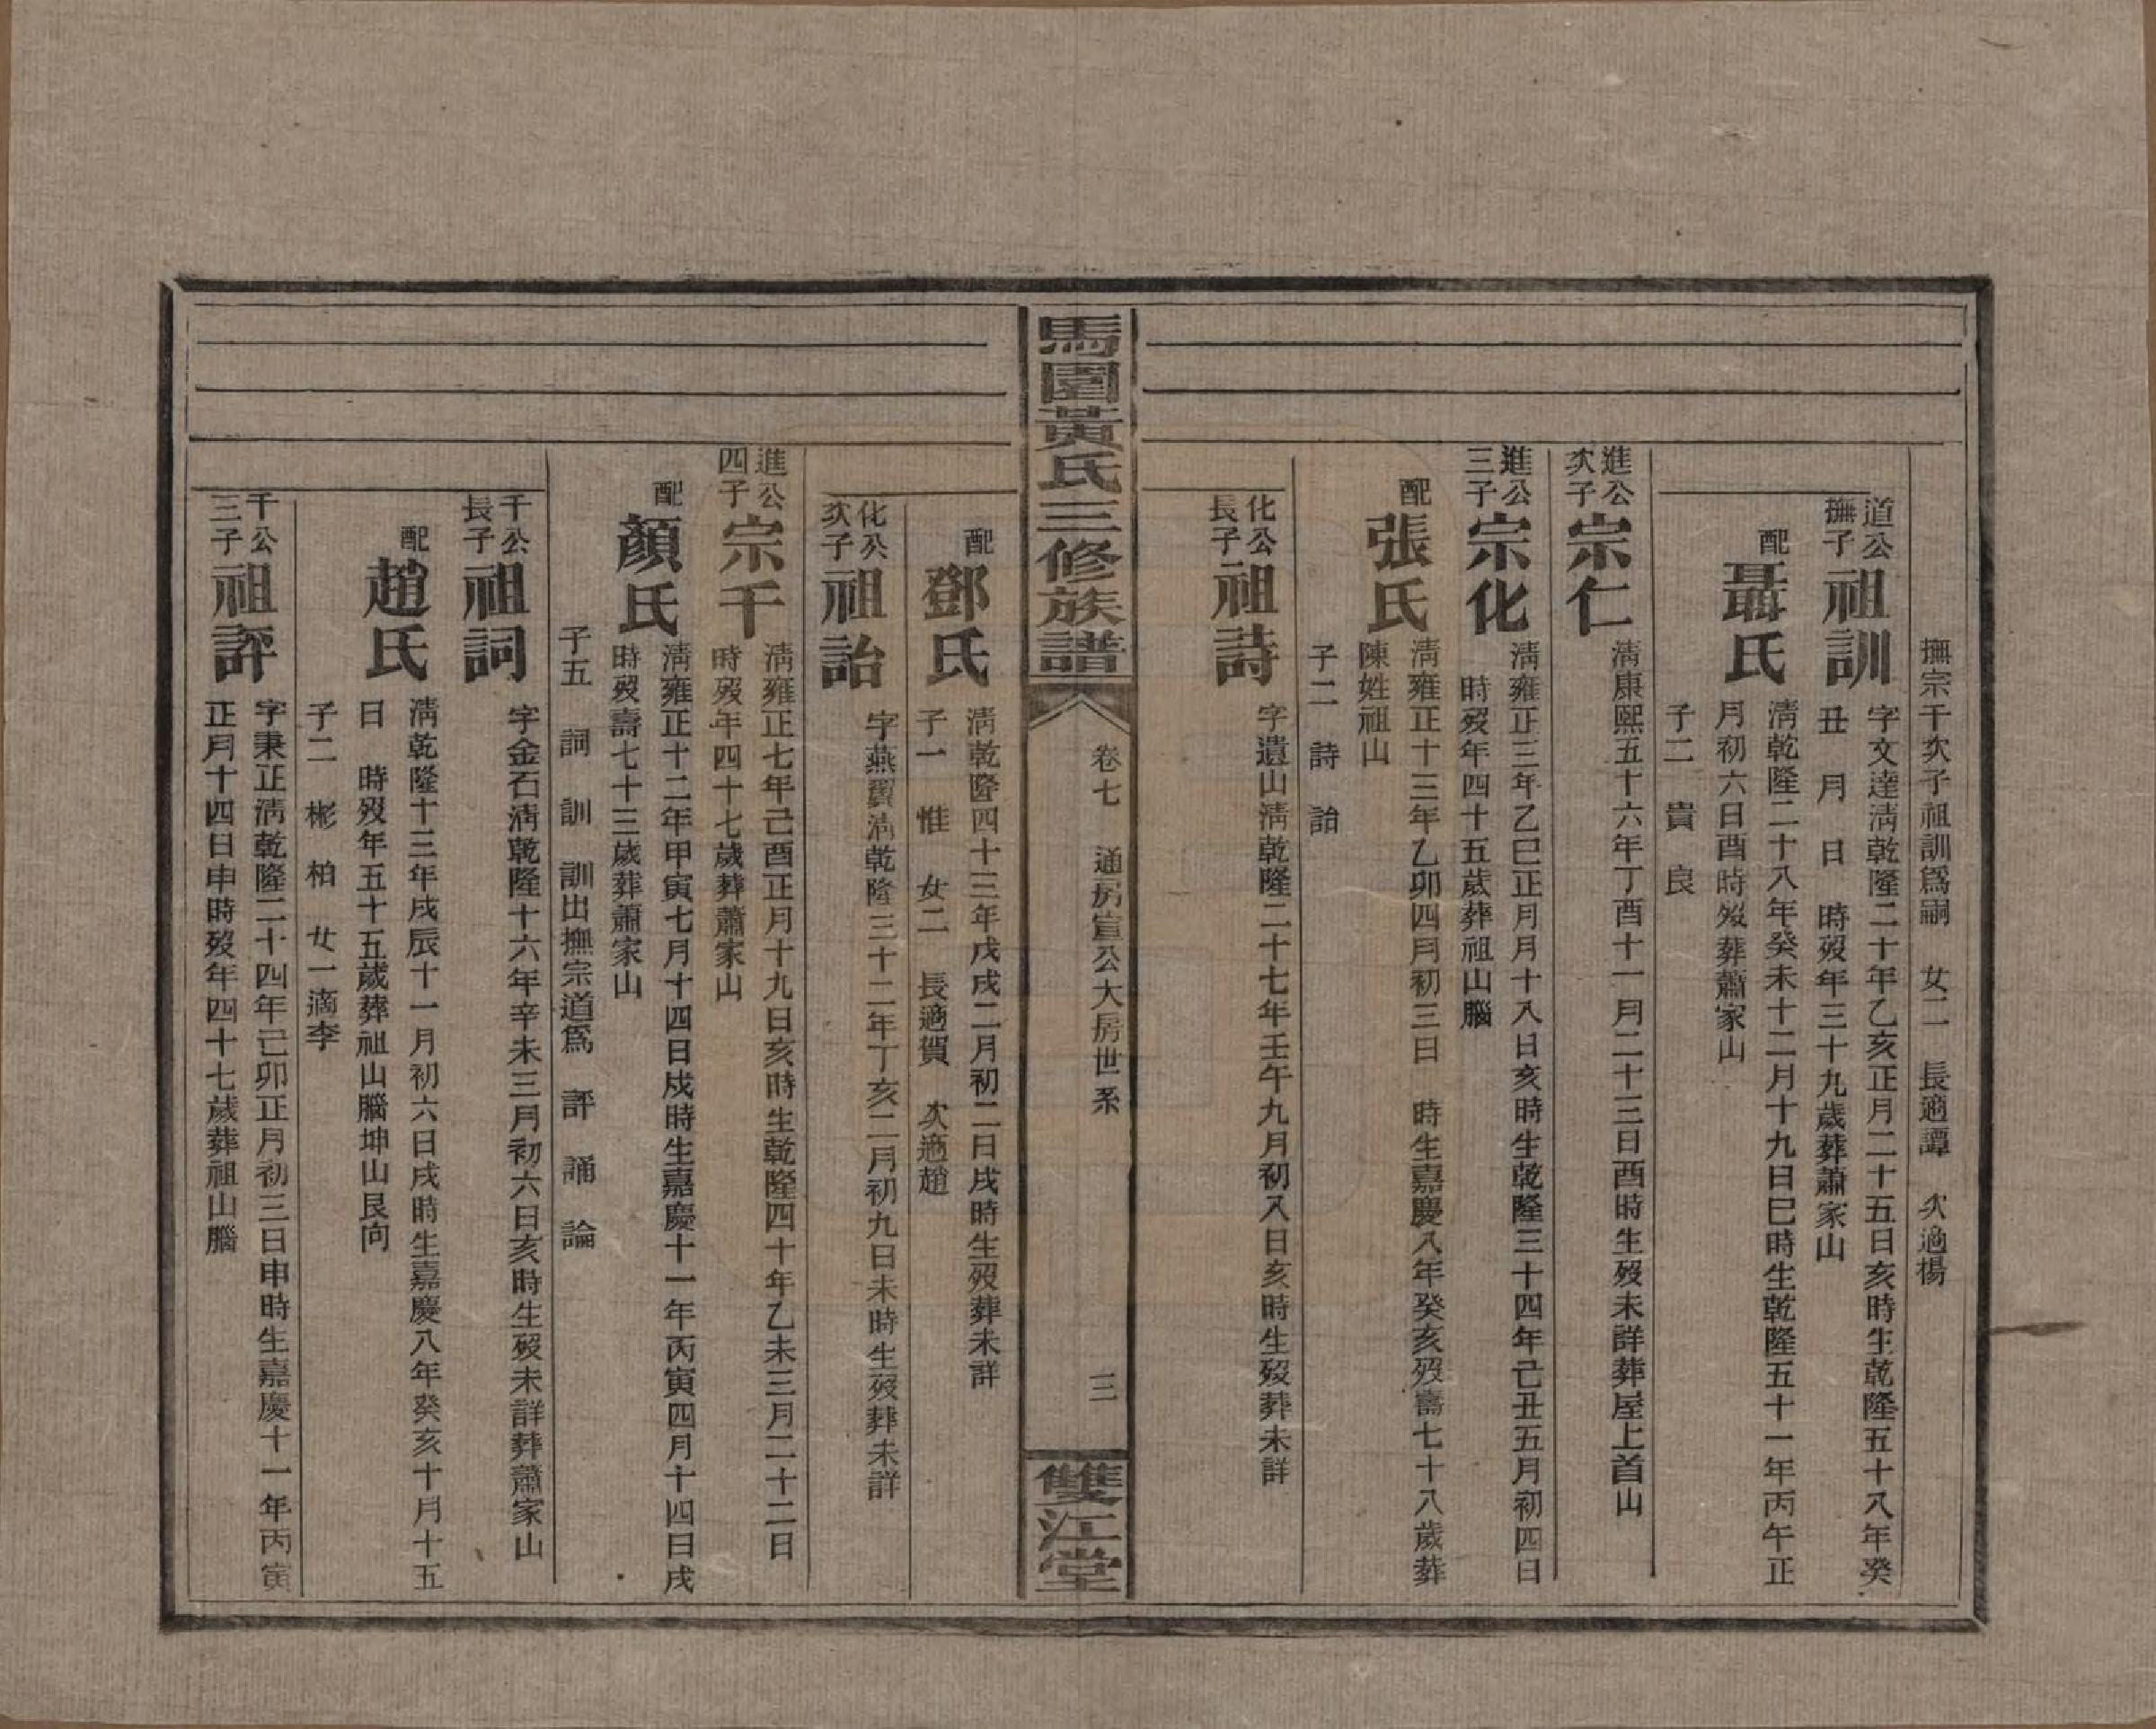 撫宗干次子祖訓爲嗣　女二　長適譚　次適楊
道公
撫子
祖訓
字文達淸乾隆二十年乙亥正月二十五日亥時生乾隆五十八年癸
丑　月　日　時歿年三十九歲葬蕭家山
配
聶氏
淸乾隆二十八年癸未十二月十九日巳時生乾隆五十一年丙午正
月初六日酉時歿葬蕭家山
子二　貴　良
進公
次子
宗仁
淸康熙五十六年丁酉十一月二十三日酉時生歿未詳葬屋上首山
進公
三子
宗化
淸雍正三年乙巳正月月十八日亥時生乾隆三十四年己丑五月初四日
時歿年四十五歲葬祖山腦
配
張氏
淸雍正十三年乙卯四月初三日　時生嘉慶八年癸亥歿壽七十八歲葬
陳姓祖山
子二　詩　詒
化公
長子
祖詩
字遺山淸乾隆二十七年壬午九月初八日亥時生歿葬未詳
馬園黃氏三修族譜
卷七　通房宣公大房世系
三
雙江堂
配
鄧氏
淸乾隆四十三年戊戌二月初二日戌時生歿葬未詳
子一　惟　女二　長適賀　次適趙
化公
次子
祖詒
字燕翼淸乾隆三十二年丁亥二月初九日未時生歿葬未詳
進公
四子
宗干
淸雍正七年己酉正月十九日亥時生乾隆四十年乙未三月二十二日
時歿年四十七歲葬蕭家山
配
顏氏
淸雍正十二年甲寅七月十四日戍時生嘉慶十一年丙寅四月十四日戌
時歿壽七十三歲葬蕭家山
子五　詞　訓　訓出撫宗道爲　評　誦　論
干公
長子
祖詞
字金石淸乾隆十六年辛未三月初六日亥時生歿未詳葬蕭家山
配
趙氏
淸乾隆十三年戊辰十一月初六日戌時生嘉慶八年癸亥十月十五
日　時歿年五十五歲葬祖山腦坤山艮向
子二　彬　柏　女一適李
干公
三子
祖評
字秉正淸乾隆二十四年己卯正月初三日申時生嘉慶十一年丙寅
正月十四日申時歿年四十七歲葬祖山腦